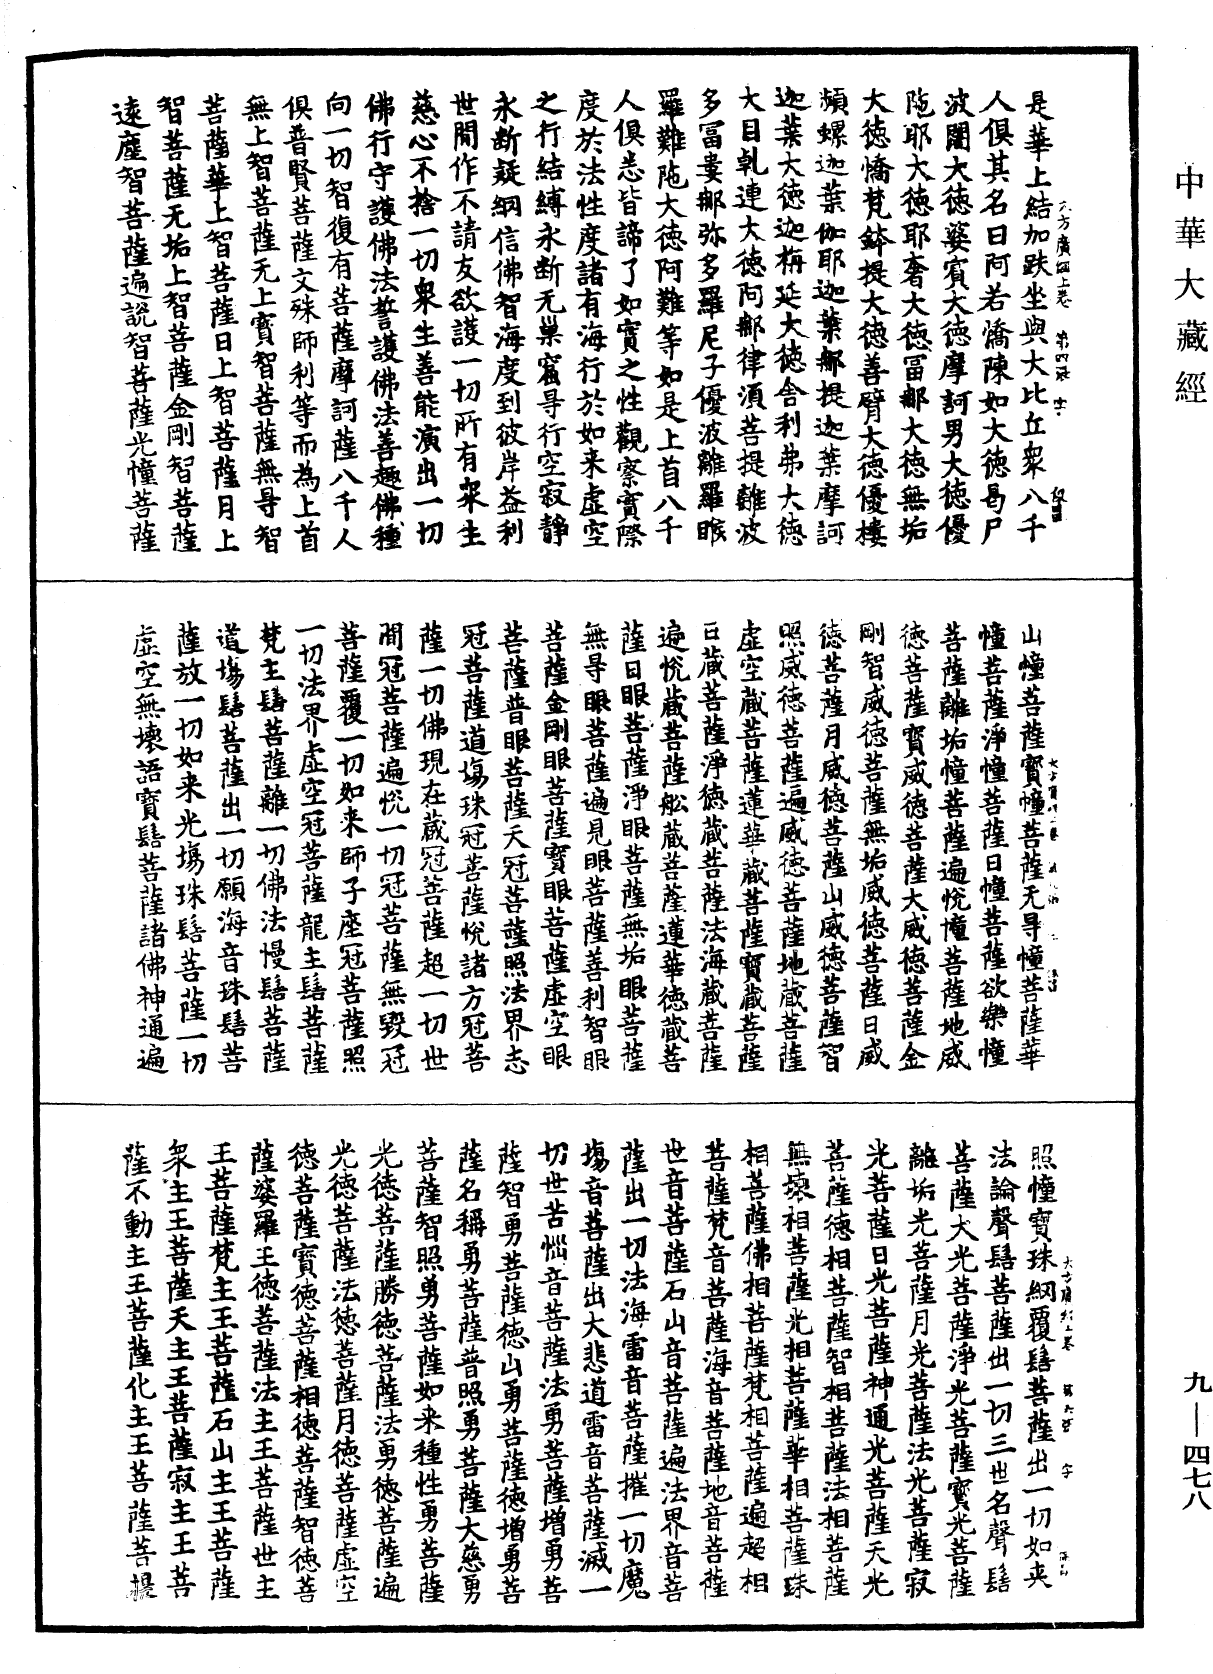 中華大藏經
是華上結加趺坐與大比丘衆八千
人俱其名曰阿若憍陳如大德曷尸
波闍大德婆賓大德摩訶男大德優
陁耶大德耶奢大德冨那大德無垢
大德憍梵鉢提大德善臂大德優樓
頻螺迦葉伽耶迦葉那提迦葉摩訶
迦葉大德迦栴延大德舍利弗大德
大目乹連大德阿那律湏菩提離波
多冨婁那弥多羅尼子優波離羅睺
羅難陁大德阿難等如是上首八千
人俱悉皆諦了如實之性觀察實際
度於法性度諸有海行於如来虚空
之行結縛永斷无巢窟㝵行空寂静
永斷疑網信佛智海度到彼岸益利
世閒作不請友欲護一切所有衆生
慈心不捨一切衆生善能演出一切
佛行守護佛法誓護佛法善趣佛種
向一切智復有菩薩摩訶薩八千人
俱普賢菩薩文殊師利等而為上首
無上智菩薩无上寳智菩薩無㝵智
菩薩華上智菩薩日上智菩薩月上
智菩薩无垢上智菩薩金剛智菩薩
遠塵智菩薩遍說智菩薩光幢菩薩
山幢菩薩寳幢菩薩无㝵幢菩薩華
幢菩薩淨幢菩薩日幢菩薩欲樂幢
菩薩離垢幢菩薩遍悅幢菩薩地威
德菩薩寳威德菩薩大威德菩薩金
剛智威德菩薩無垢威德菩薩日威
德菩薩月威德菩薩山威德菩薩智
照威德菩薩遍威德菩薩地藏菩薩
虛空藏菩薩蓮華藏菩薩寳藏菩薩
日藏菩薩淨德藏菩薩法海藏菩薩
遍悅藏菩薩舩藏菩薩蓮華德藏菩
薩日眼菩薩淨眼菩薩無垢眼菩薩
無㝵眼菩薩遍見眼菩薩善利智眼
菩薩金剛眼菩薩寳眼菩薩虛空眼
菩薩普眼菩薩天冠菩薩照法界志
冠菩薩道塲珠冠菩薩悅諸方冠菩
薩一切佛現在藏冠菩薩超一切世
閒冠菩薩遍悅一切冠菩薩無毀冠
菩薩覆一切如来師子座冠菩薩照
一切法界虛空冠菩薩龍主髻菩薩
梵主髻菩薩離一切佛法慢髻菩薩
道塲髻菩薩出一切願海音珠髻菩
薩放一切如来光塲珠髻菩薩一切
虛空無壞語寳髻菩薩諸佛神通遍
照幢寳珠網覆髻菩薩出一切如来
法論聲髻菩薩出一切三世名聲髻
菩薩大光菩薩淨光菩薩寳光菩薩
離垢光菩薩月光菩薩法光菩薩寂
光菩薩日光菩薩神通光菩薩天光
菩薩德相菩薩智相菩薩法相菩薩
無壞相菩薩光相菩薩華相菩薩珠
相菩薩佛相菩薩梵相菩薩遍超相
菩薩梵音菩薩海音菩薩地音菩薩
世音菩薩石山音菩薩遍法界音菩
薩出一切法海雷音菩薩摧一切魔
塲音菩薩出大悲道雷音菩薩滅一
切世苦惱音菩薩法勇菩薩增勇菩
薩智勇菩薩德山勇菩薩德增勇菩
薩名稱勇菩薩普照勇菩薩大慈勇
菩薩智照勇菩薩如来種性勇菩薩
光德菩薩勝德菩薩法勇德菩薩遍
光德菩薩法德菩薩月德菩薩虛空
德菩薩寳德菩薩相德菩薩智德菩
薩娑羅王德菩薩法主王菩薩世主
王菩薩梵主王菩薩石山主王菩薩
衆主王菩薩天主王菩薩寂主王菩
薩不動主王菩薩化主王菩薩菩提
九—四七八